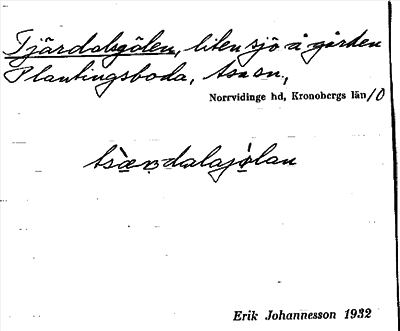 Tjärdalsgölen, liten sjö å gården
Plantingsboda,
Norrvidinge hd, Kronobergs län/10
tsæ̀ṇdalajọ̈lan
Erik Johannesson 1932